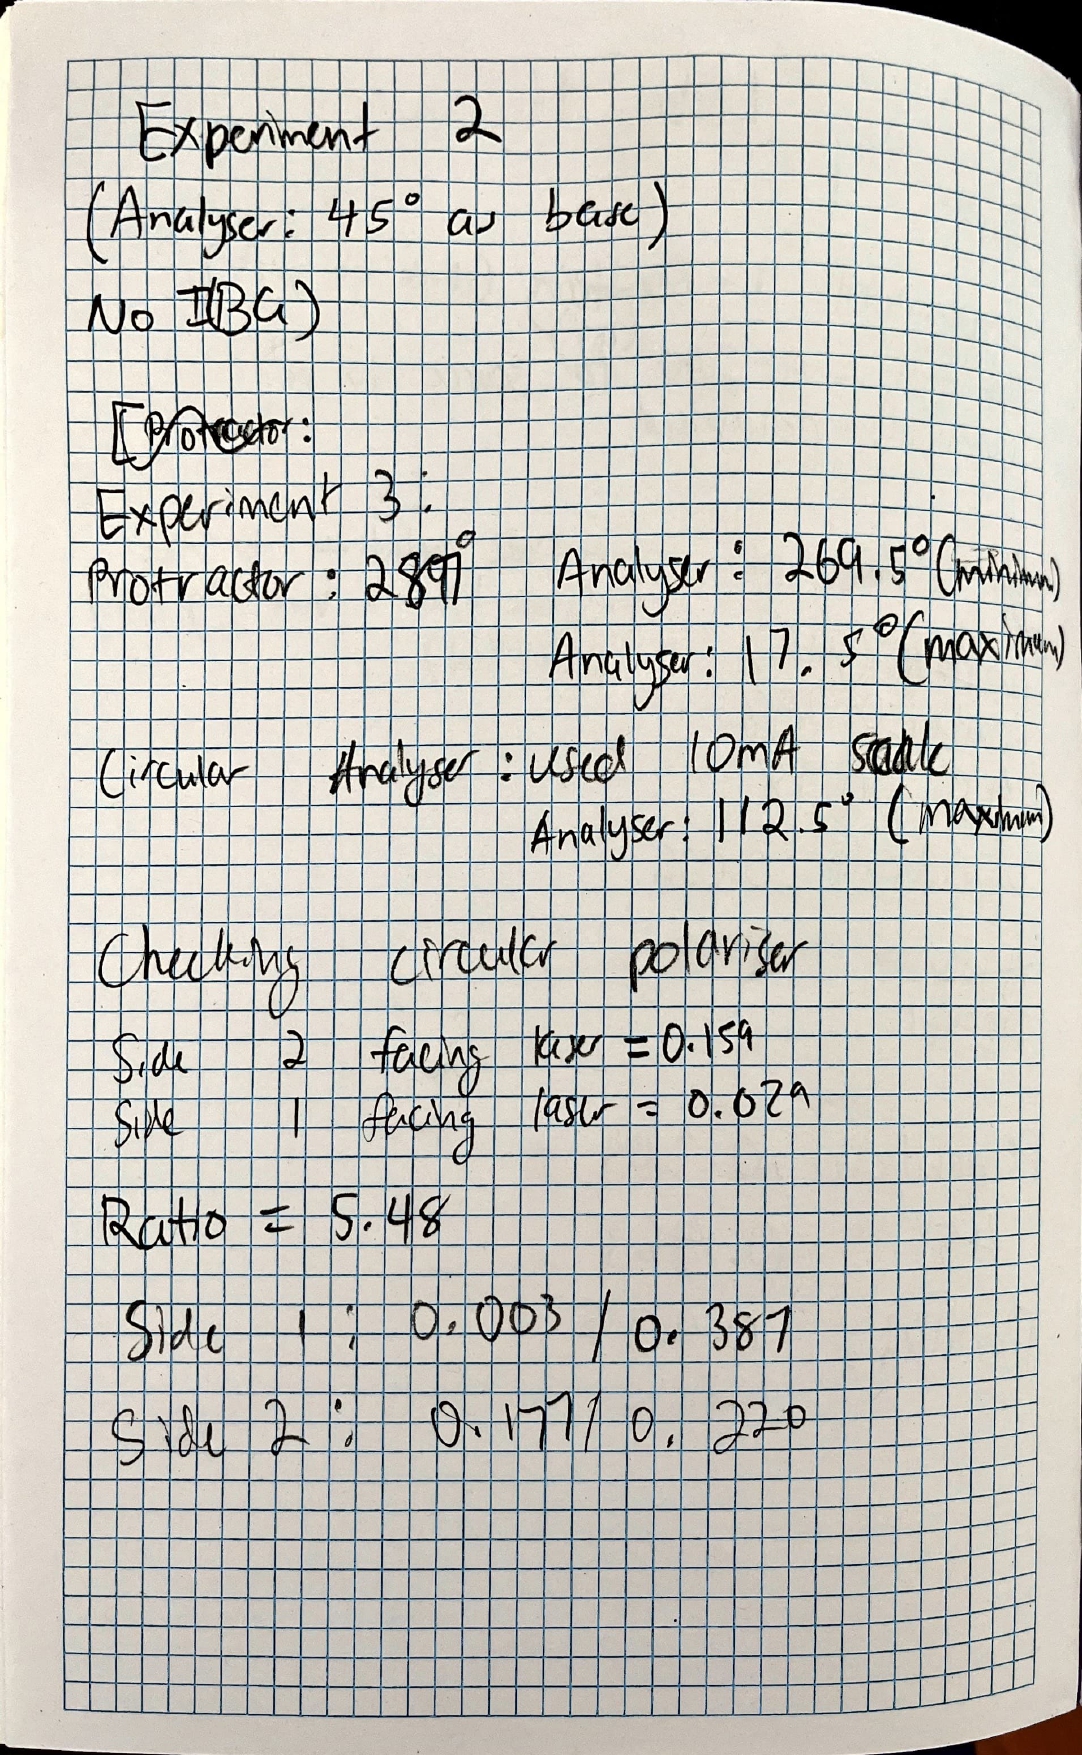 Experiment 2
(Analyser: 45° as base)
No IBG)
[Protractor:
Experiment 3:
Protractor: 289° Analyser: 269.5° (minimum)
Analyser: 17.5° (maximum)
Circular Analyser: used 10mA scale
Analyser: 112.5° (maximum)
Checking circular polariser
Side 2 facing laser = 0.159
Side 1 facing laser = 0.029
Ratio = 5.48
Side 1: 0.003 / 0.387
Side 2: 0.177 / 0.220